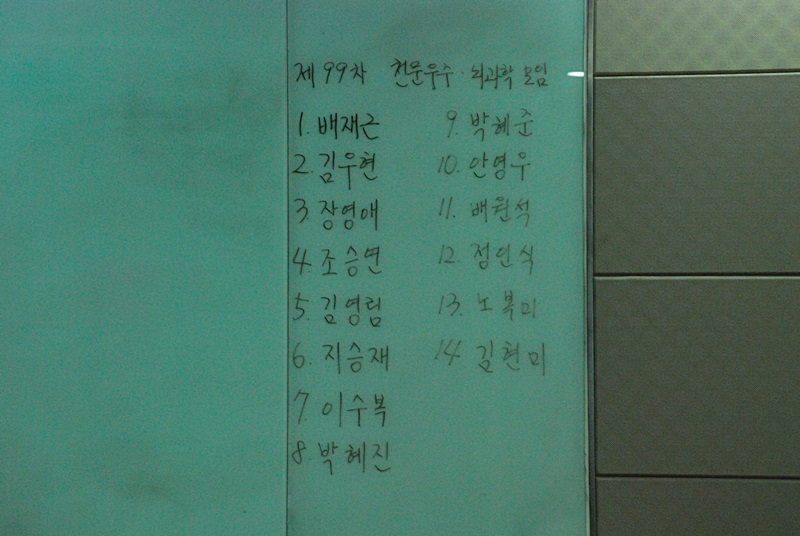 제 99차 천문우주·뇌과학 모임
1. 배재근
2. 김우현
3. 장영애
4. 조승연
5. 김영림
6. 지승재
7. 이수복
8. 박혜진
9. 박혜준
10. 안영우
11. 배원석
12. 정인식
13. 노복미
14. 김현미